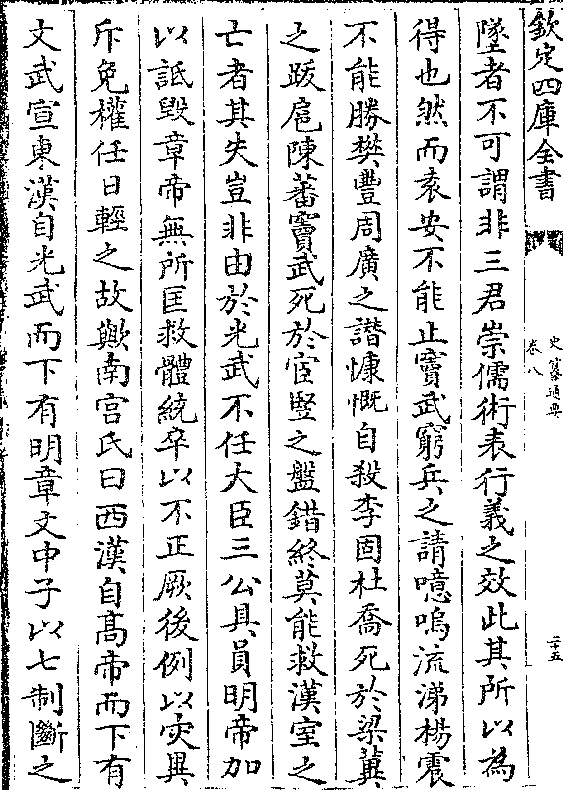 欽定四庫全書
史纂通要
卷八
二十五
墜者不可謂非三君崇儒術表行義之效此其所以為
得也然而袁安不能止竇武窮兵之請噫嗚流涕楊震
不能勝樊豐周廣之譖慷慨自殺李固杜喬死於梁冀
之跋扈陳蕃竇武死於宦竪之盤錯終莫能救漢室之
亡者其失豈非由於光武不任大臣三公具員明帝加
以詆毀章帝無所匡救體統卒以不正厥後例以灾異
斥免權任日輕之故歟南宫氏曰西漢自髙帝而下有
文武宣東漢自光武而下有明章文中子以七制斷之